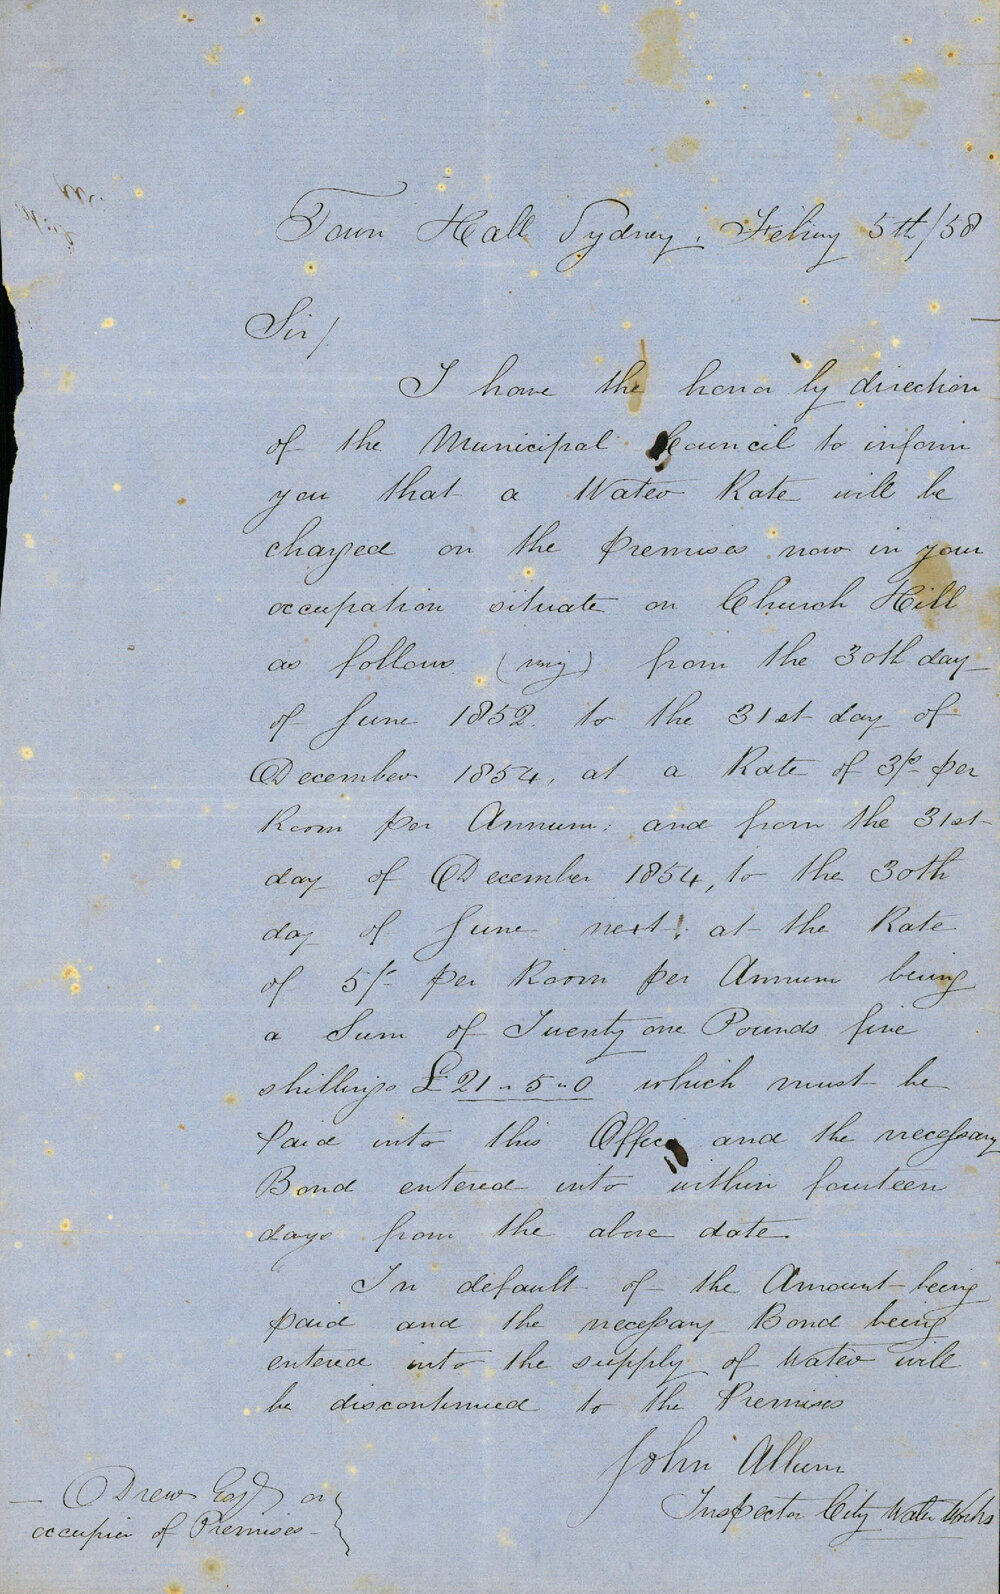 Town Hall Sydney, Febuy 5th/58
Sir/
I have the honor by direction
of the Municipal Council to inform
you that a Water Rate will be
charged on the Premises now in your
occupation situate on Church Hill
as follows (viz) from the 30th day
of June 1852 to the 31st day of
December 1854, at a Rate of 3/- per
Room per Annum: and from the 31st
day of December 1854, to the 30th
day of June next; at the Rate
of 5/- per Room per Annum being
a Sum of Twenty one Pounds five
shillings £21-5-0 which must be
Paid into this Office and the necessary
Bond entered into within fourteen
days from the above date.
In default of the Amount being
paid and the necessary Bond being
entered into the supply of Water will
be discontinued to the Premises
John Allum
Inspector City Water Works
Drew Esq or
occupier of Premises